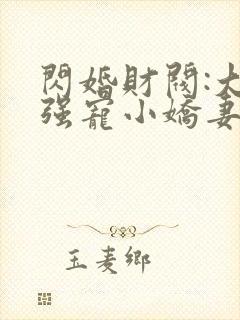 閃婚財閥:大
強寵小嬌妻
玉麦鄉